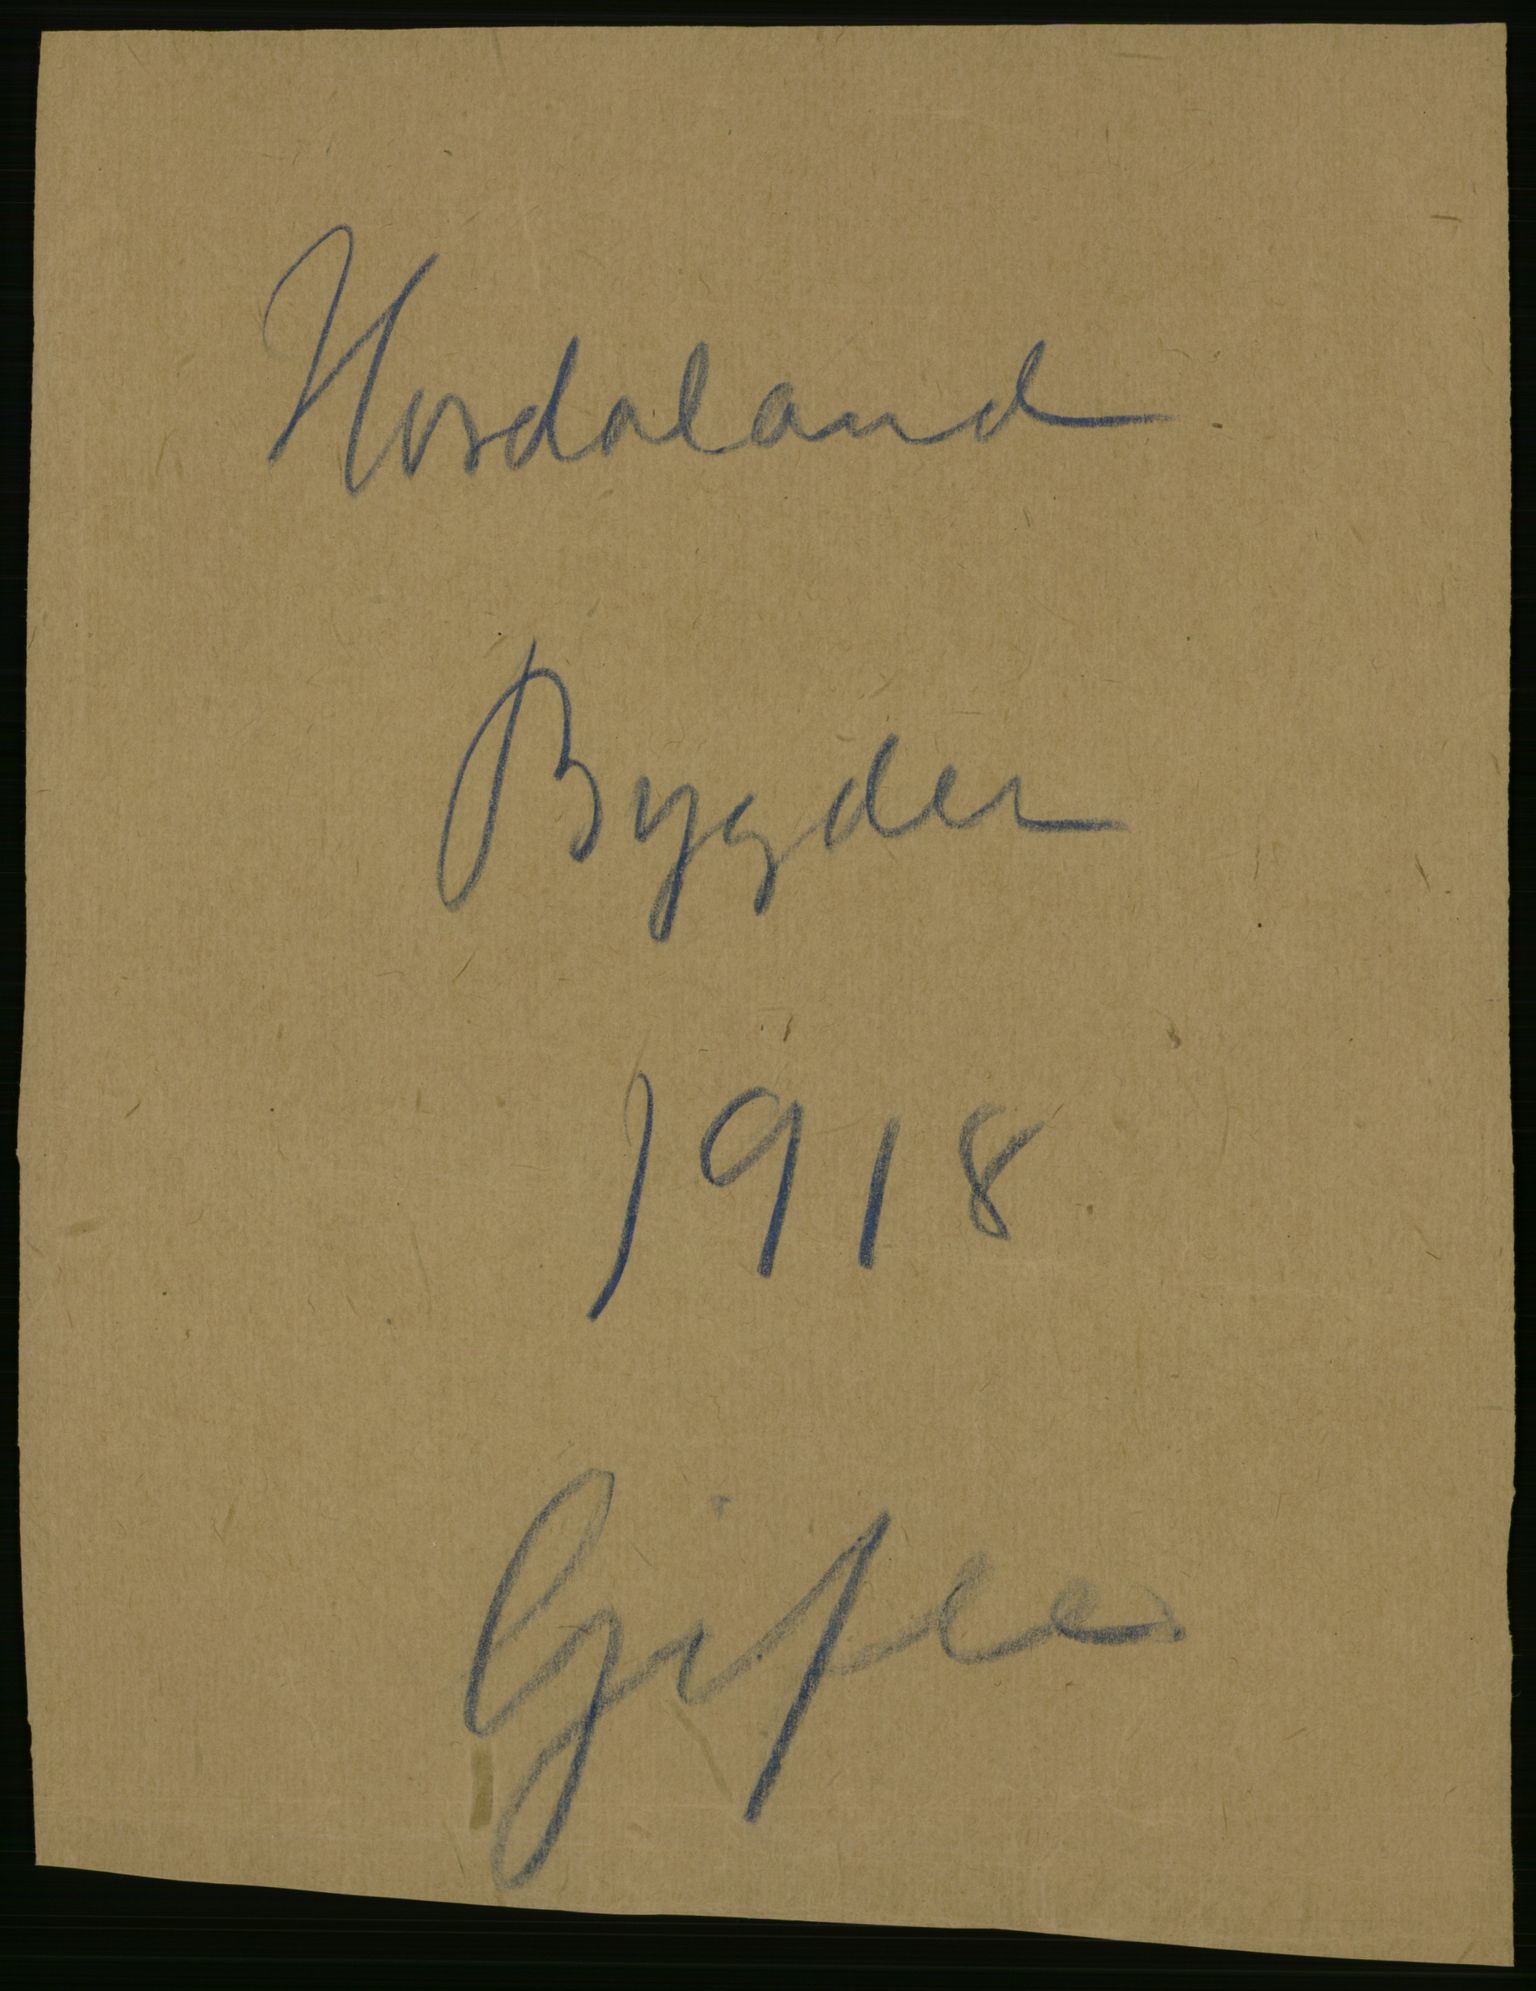 Hordaland
Bygder
1918
Gifte